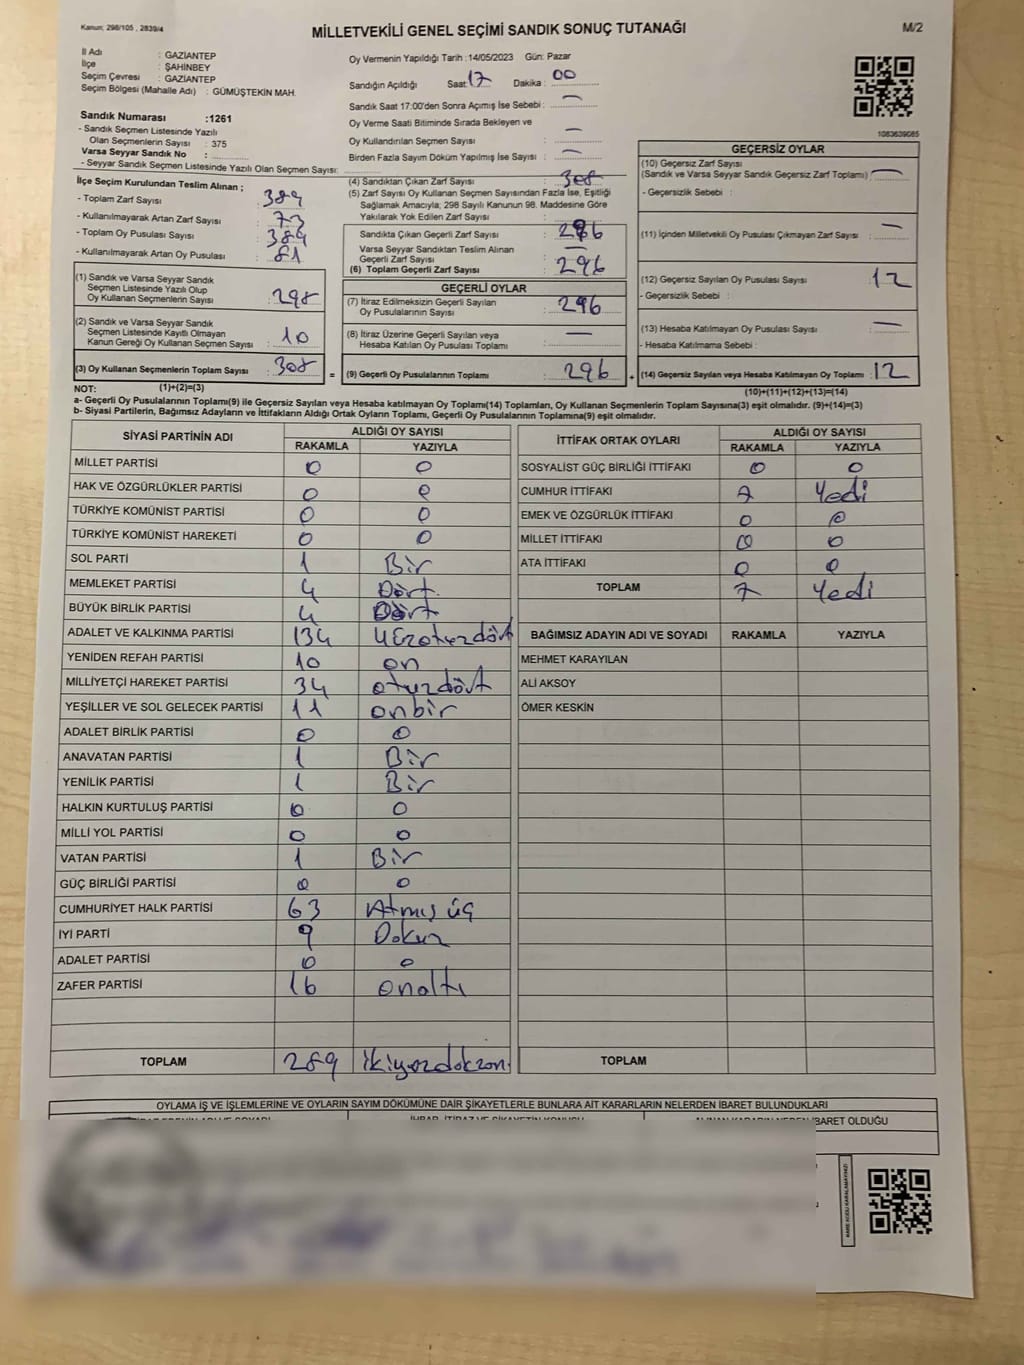 Kanun: 298/105 , 2839/4
MİLLETVEKİLİ GENEL SEÇİMİ SANDIK SONUÇ TUTANAĞI
M/2
İl Adı : GAZİANTEP
İlçe : ŞAHİNBEY
Seçim Çevresi : GAZİANTEP
Seçim Bölgesi (Mahalle Adı) : GÜMÜŞTEKİN MAH.
Sandık Numarası :1261
- Sandık Seçmen Listesinde Yazılı
Olan Seçmenlerin Sayısı : 375
Varsa Seyyar Sandık No :
- Seyyar Sandık Seçmen Listesinde Yazılı Olan Seçmen Sayısı:
Oy Vermenin Yapıldığı Tarih :14/05/2023 Gün: Pazar
Sandığın Açıldığı Saat: 17 Dakika : 00
Sandık Saat 17:00'den Sonra Açımış İse Sebebi : —
Oy Verme Saati Bitiminde Sırada Bekleyen ve
Oy Kullandırılan Seçmen Sayısı : —
Birden Fazla Sayım Döküm Yapılmış İse Sayısı : —
1083639085
İlçe Seçim Kurulundan Teslim Alınan ;
- Toplam Zarf Sayısı : 384
- Kullanılmayarak Artan Zarf Sayısı : 73
- Toplam Oy Pusulası Sayısı : 384
- Kullanılmayarak Artan Oy Pusulası : 81
(1) Sandık ve Varsa Seyyar Sandık
Seçmen Listesinde Yazılı Olup
Oy Kullanan Seçmenlerin Sayısı : 298
(2) Sandık ve Varsa Seyyar Sandık
Seçmen Listesinde Kayıtlı Olmayan
Kanun Gereği Oy Kullanan Seçmen Sayısı : 10
(3) Oy Kullanan Seçmenlerin Toplam Sayısı : 308 =
(4) Sandıktan Çıkan Zarf Sayısı : 308
(5) Zarf Sayısı Oy Kullanan Seçmen Sayısından Fazla İse, Eşitliği
Sağlamak Amacıyla; 298 Sayılı Kanunun 98. Maddesine Göre
Yakılarak Yok Edilen Zarf Sayısı :
Sandıkta Çıkan Geçerli Zarf Sayısı : 296
Varsa Seyyar Sandıktan Teslim Alınan
Geçerli Zarf Sayısı : —
(6) Toplam Geçerli Zarf Sayısı : 296
GEÇERLİ OYLAR
(7) İtiraz Edilmeksizin Geçerli Sayılan
Oy Pusulalarının Sayısı : 296
(8) İtiraz Üzerine Geçerli Sayılan veya
Hesaba Katılan Oy Pusulası Toplamı : —
(9) Geçerli Oy Pusulalarının Toplamı : 296 +
GEÇERSİZ OYLAR
(10) Geçersiz Zarf Sayısı
(Sandık ve Varsa Seyyar Sandık Geçersiz Zarf Toplamı) : —
- Geçersizlik Sebebi :
(11) İçinden Milletvekili Oy Pusulası Çıkmayan Zarf Sayısı : —
(12) Geçersiz Sayılan Oy Pusulası Sayısı : 12
- Geçersizlik Sebebi :
(13) Hesaba Katılmayan Oy Pusulası Sayısı : —
- Hesaba Katılmama Sebebi :
(14) Geçersiz Sayılan veya Hesaba Katılmayan Oy Toplamı : 12
NOT: (1)+(2)=(3) (10)+(11)+(12)+(13)=(14)
a- Geçerli Oy Pusulalarının Toplamı(9) ile Geçersiz Sayılan veya Hesaba katılmayan Oy Toplamı(14) Toplamları, Oy Kullanan Seçmenlerin Toplam Sayısına(3) eşit olmalıdır. (9)+(14)=(3)
b- Siyasi Partilerin, Bağımsız Adayların ve İttifakların Aldığı Ortak Oyların Toplamı, Geçerli Oy Pusulalarının Toplamına(9) eşit olmalıdır.
SİYASİ PARTİNİN ADI ALDIĞI OY SAYISI
RAKAMLA YAZIYLA
MİLLET PARTİSİ 0 0
HAK VE ÖZGÜRLÜKLER PARTİSİ 0 0
TÜRKİYE KOMÜNİST PARTİSİ 0 0
TÜRKİYE KOMÜNİST HAREKETİ 0 0
SOL PARTİ 1 Bir
MEMLEKET PARTİSİ 4 Dört
BÜYÜK BİRLİK PARTİSİ 4 Dört
ADALET VE KALKINMA PARTİSİ 134
YENİDEN REFAH PARTİSİ 10 on
MİLLİYETÇİ HAREKET PARTİSİ 34 otuzdört
YEŞİLLER VE SOL GELECEK PARTİSİ 11 onbir
ADALET BİRLİK PARTİSİ 0 0
ANAVATAN PARTİSİ 1 Bir
YENİLİK PARTİSİ 1 Bir
HALKIN KURTULUŞ PARTİSİ 0 0
MİLLİ YOL PARTİSİ 0 0
VATAN PARTİSİ 1 Bir
GÜÇ BİRLİĞİ PARTİSİ 0 0
CUMHURİYET HALK PARTİSİ 63 Atmış üç
İYİ PARTİ 9 Dokuz
ADALET PARTİSİ 0 0
ZAFER PARTİSİ 16 onaltı
TOPLAM 289
İTTİFAK ORTAK OYLARI ALDIĞI OY SAYISI
RAKAMLA YAZIYLA
SOSYALİST GÜÇ BİRLİĞİ İTTİFAKI 0 0
CUMHUR İTTİFAKI 7 Yedi
EMEK VE ÖZGÜRLÜK İTTİFAKI 0 0
MİLLET İTTİFAKI 0 0
ATA İTTİFAKI 0 0
TOPLAM 7 Yedi
BAĞIMSIZ ADAYIN ADI VE SOYADI RAKAMLA YAZIYLA
MEHMET KARAYILAN
ALİ AKSOY
ÖMER KESKİN
TOPLAM
OYLAMA İŞ VE İŞLEMLERİNE VE OYLARIN SAYIM DÖKÜMÜNE DAİR ŞİKAYETLERLE BUNLARA AİT KARARLARIN NELERDEN İBARET BULUNDUKLARI
İBARET OLDUĞU